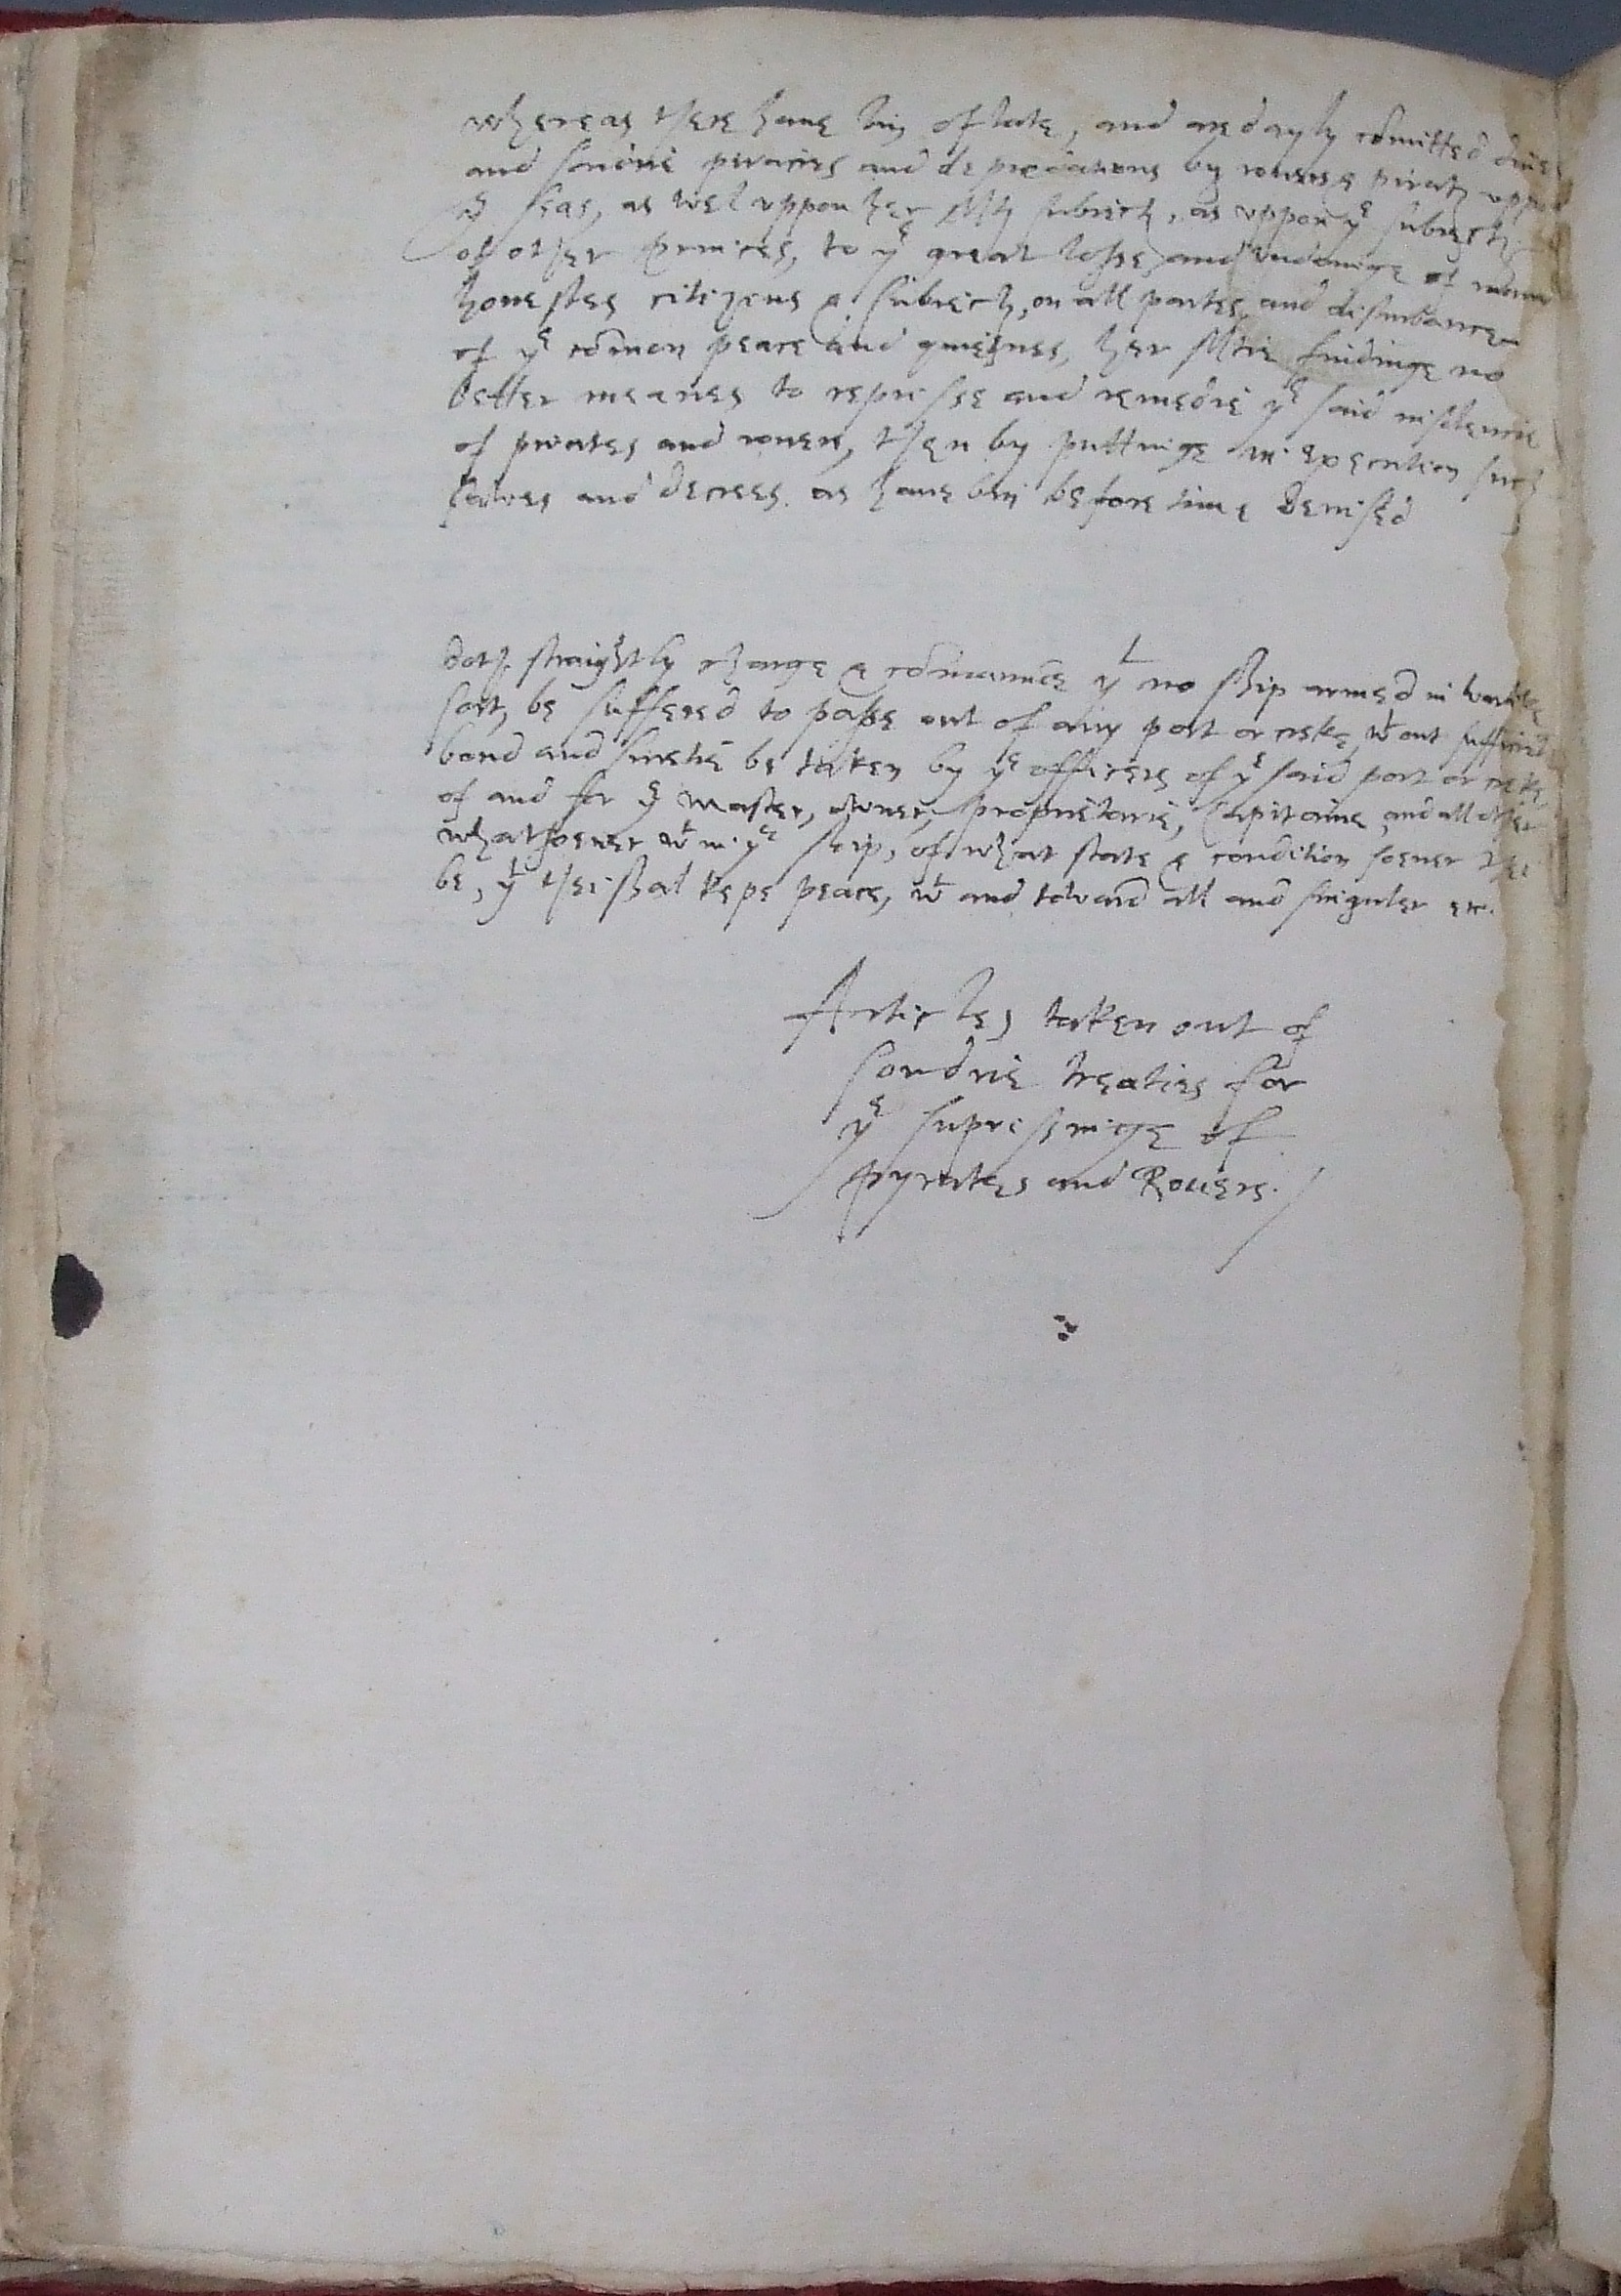 whereas there haue bin of late, and are dayly cōmitted
and sondrie piracies and depredacions by rouers & pirats uppon
yͤ seas, as wel uppon her Mtˢ subiects, as uppon yͤ subiects
of other princes, to yͤ great losse and indamige of
honestes citizens & subiects, on all partes, and disturbance
of yͤ cōmon peace and quietnes, her Mtie findinge no
better meanes to represse and remedie yͤ said insolencie
of pirates and rouers, then by puttinge in execution such
lawes and decrees as haue bin before time deuised
doth straightly charge & cōmaunde yͭ no ship armed in warlike
sort, be suffered to passe out of any port or creke wͭout sufficient
bond and suretie be taken by yͤ officers of yͤ said port or creke,
of and for yͤ master, owner, proprietarie, Capitaine and all other
whatsoeuer wͭin yͤ ship, of what state & condition soeuer thei
be, yͭ thei shal kepe peace, wͭ and toward all and singuler etc.
Articles taken out of
sondrie treaties for
yͤ supressinge of
pyrates and Rouers.